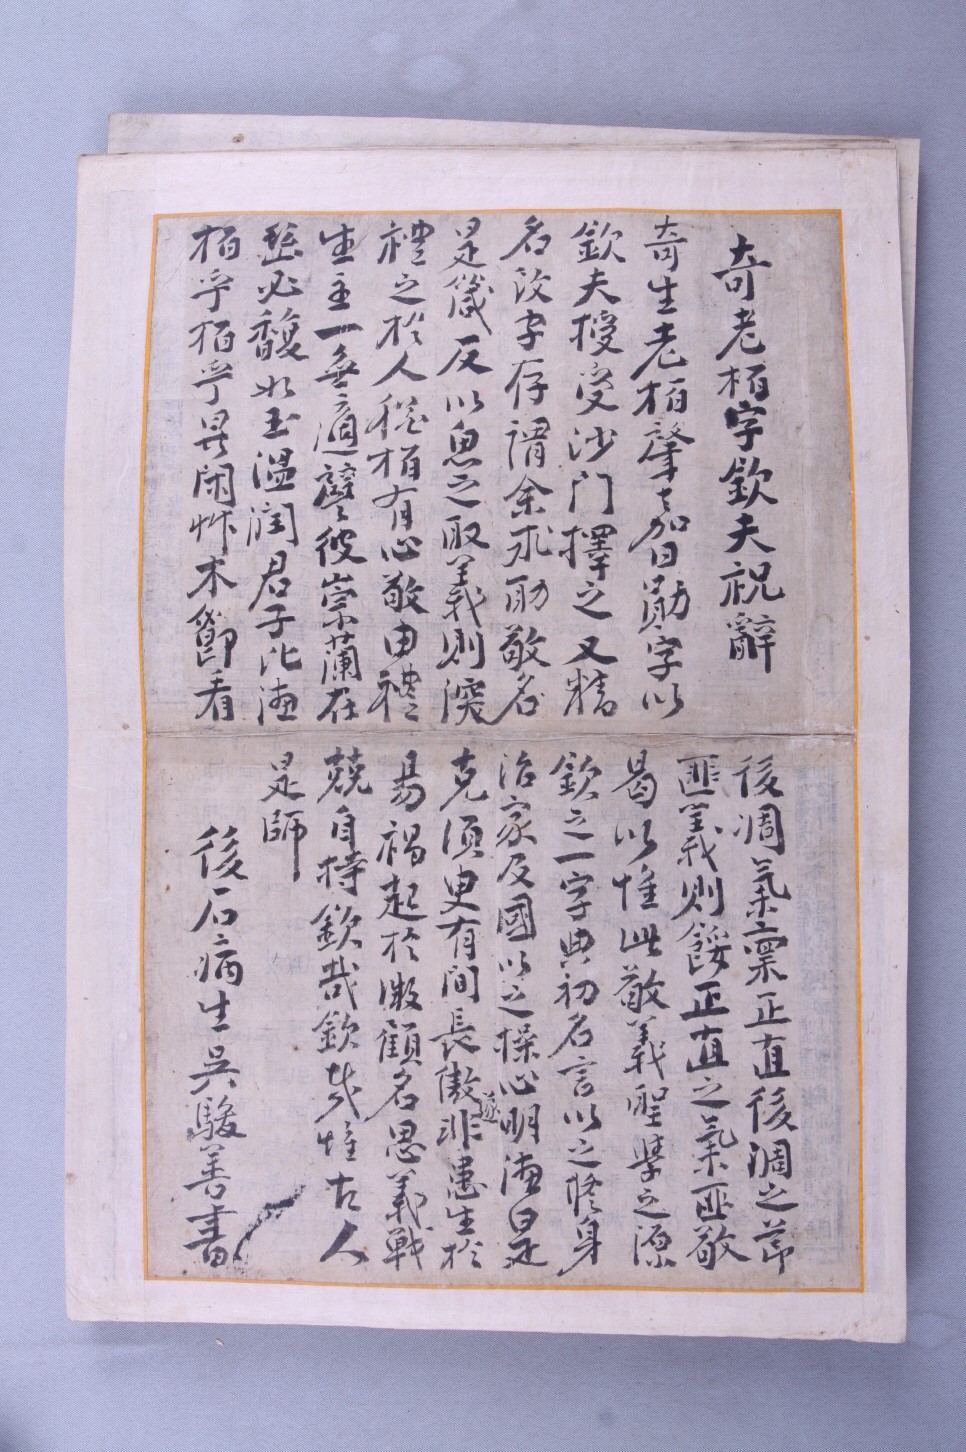 奇老栢字欽夫祝辭
奇生老栢肇三加日勛字以
欽夫授受沙門擇之又精
名改字存謂余求助敬名
是箴反以思之取義則深
禮之於人猶栢有心敬由禮
生主一無適譬彼崇蘭在
壑必馥如玉溫潤君子比德
栢乎栢乎異閑艸木節看
後凋氣稟正直後凋之節
匪義則餒正直之氣匪敬
曷以惟此敬義聖學之源
欽之一字典初名言以之修身
治家及國以之操心明德是
克須臾有間長傲遂非患生於
易禍起於微顧名思義戰
兢自持欽哉欽哉惟古人
是師
後石病生吳駿善書